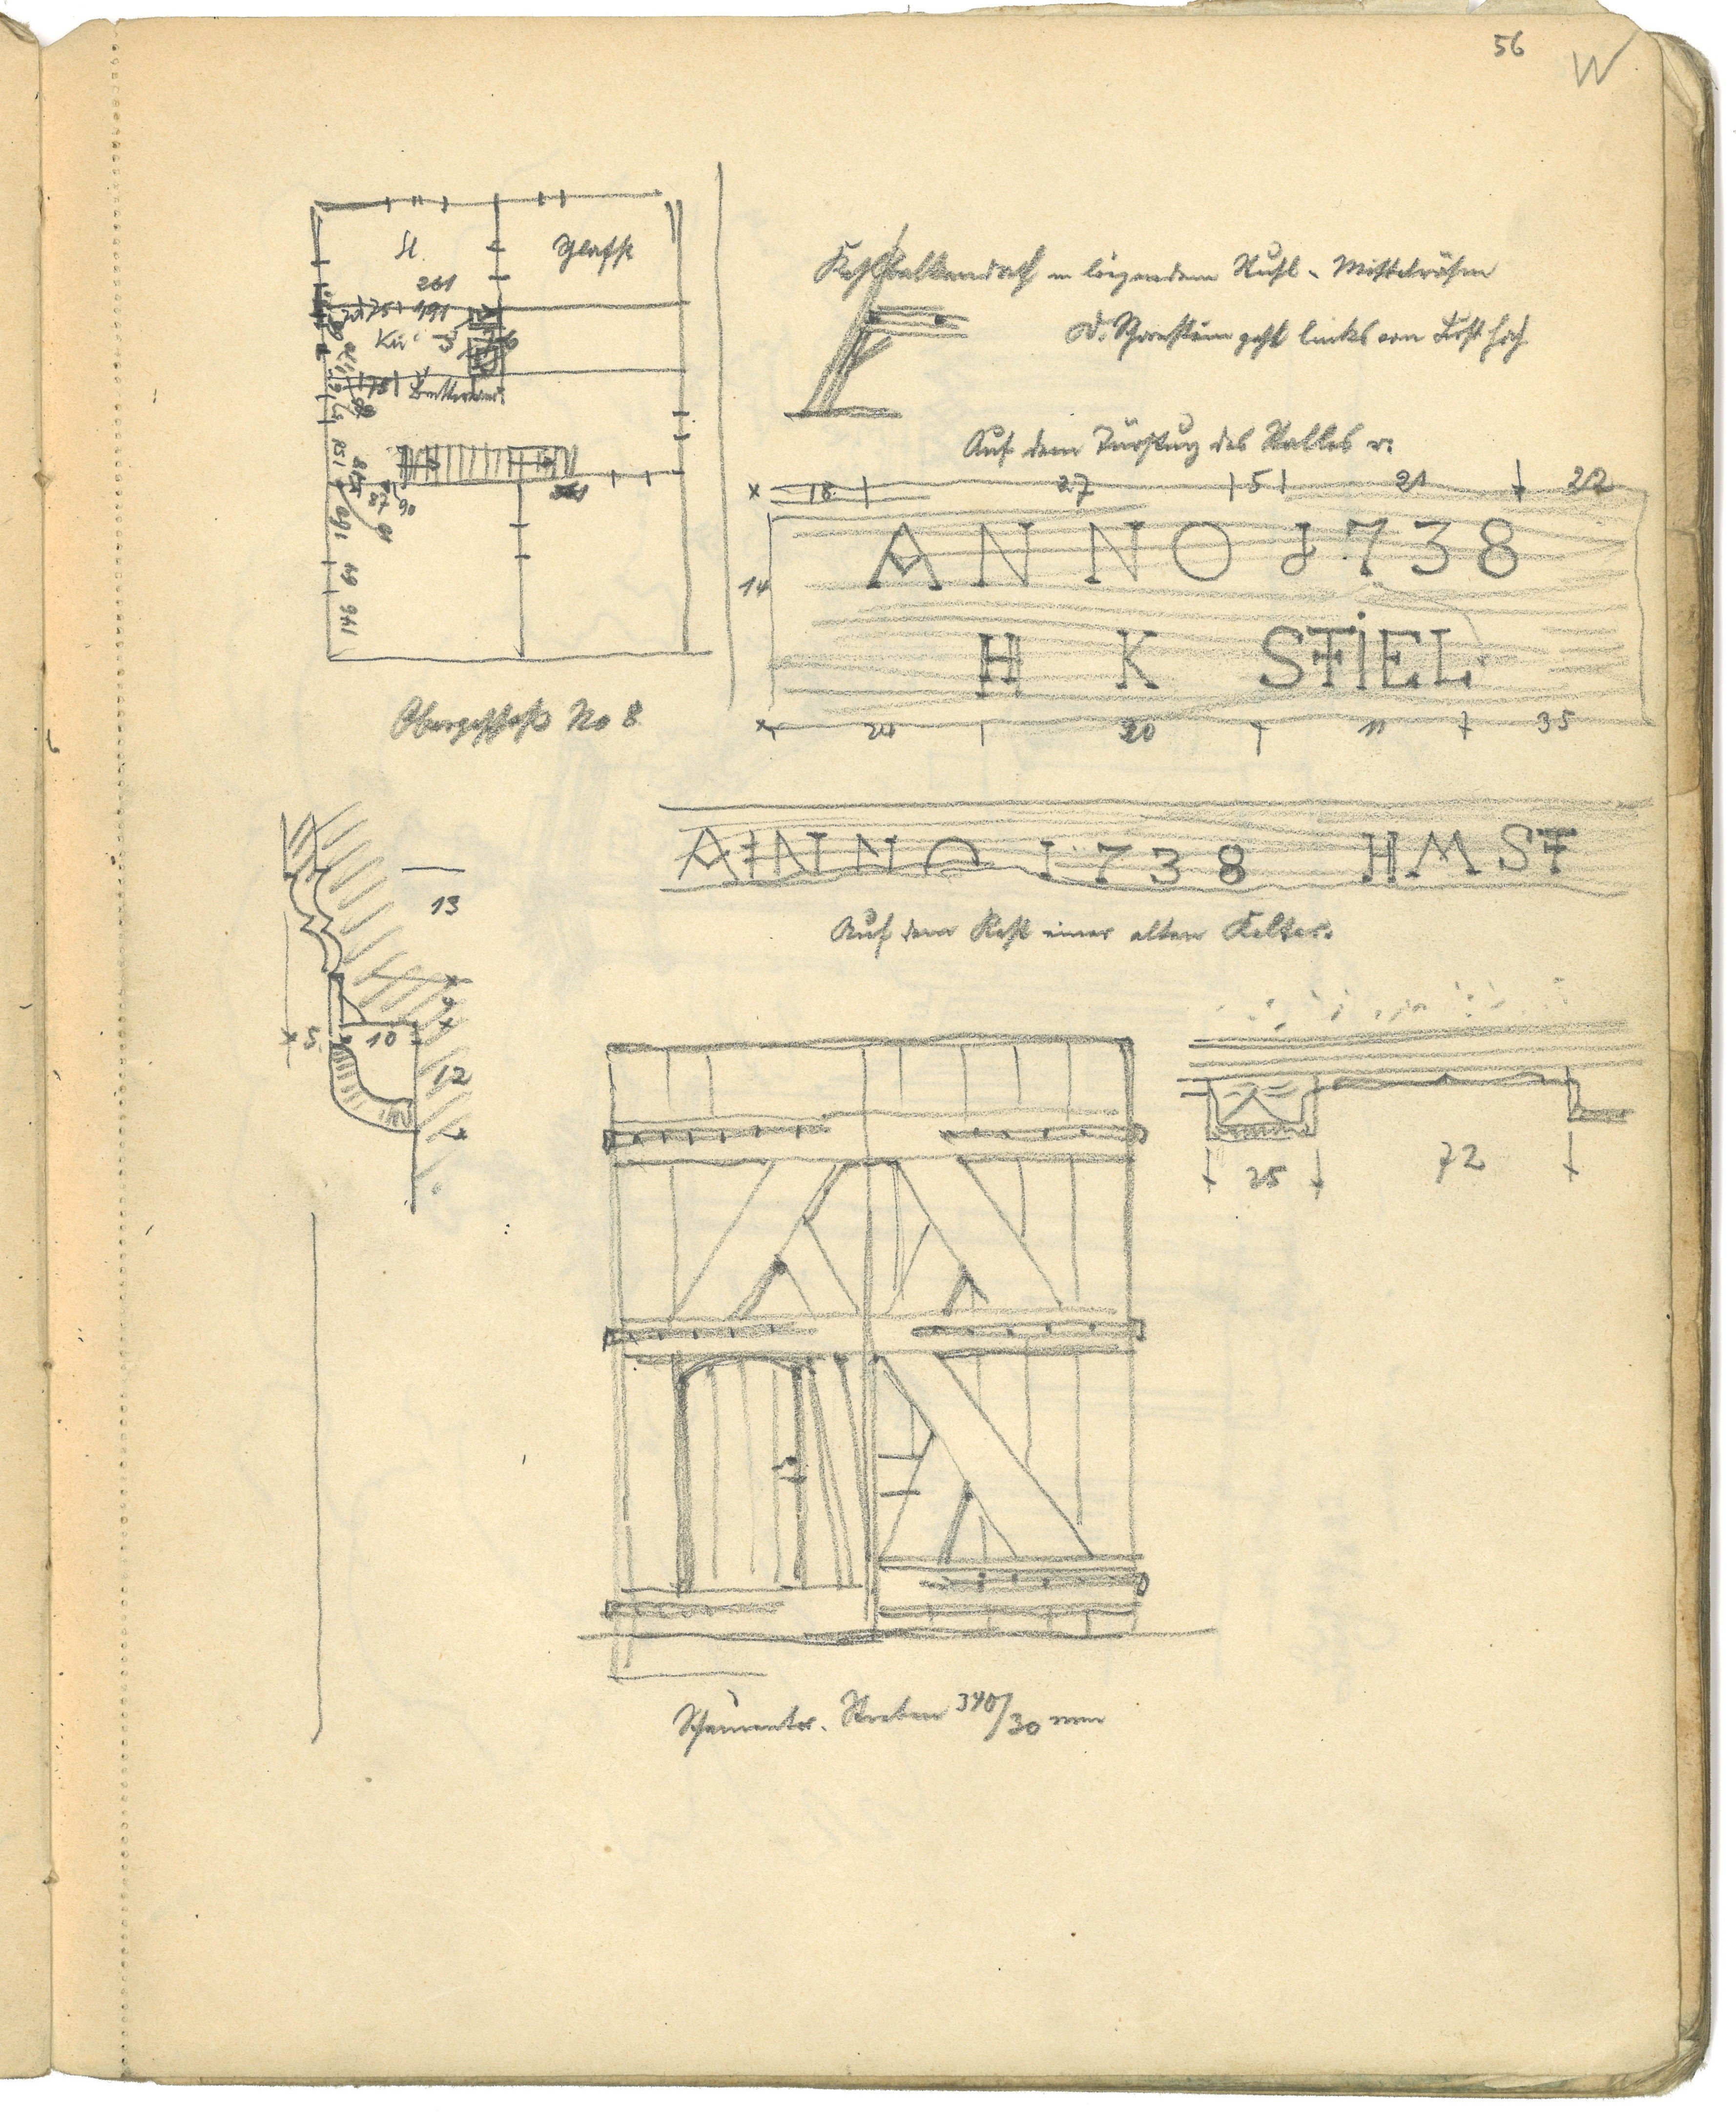 56
W
St.
Schlafst
261
75 191
Kü
3
75 Bretterwd.
87 90
169
69
146
Obergeschoß No 8
Kehlbalkendach m liegendem Stuhl - Mittelrähm
D. Schornstein geht links vom First hoch
Auf dem Türsturz des Stalles r.
18 27 5 21 22
14
ANNO 1738
H K STIEL
24 20 11 35
ANNO 1738 HMST
Auf dem Rest einer alten Kelter.
13
9
5 10
12
25 72
Scheunentor. Streben 340/30 mm